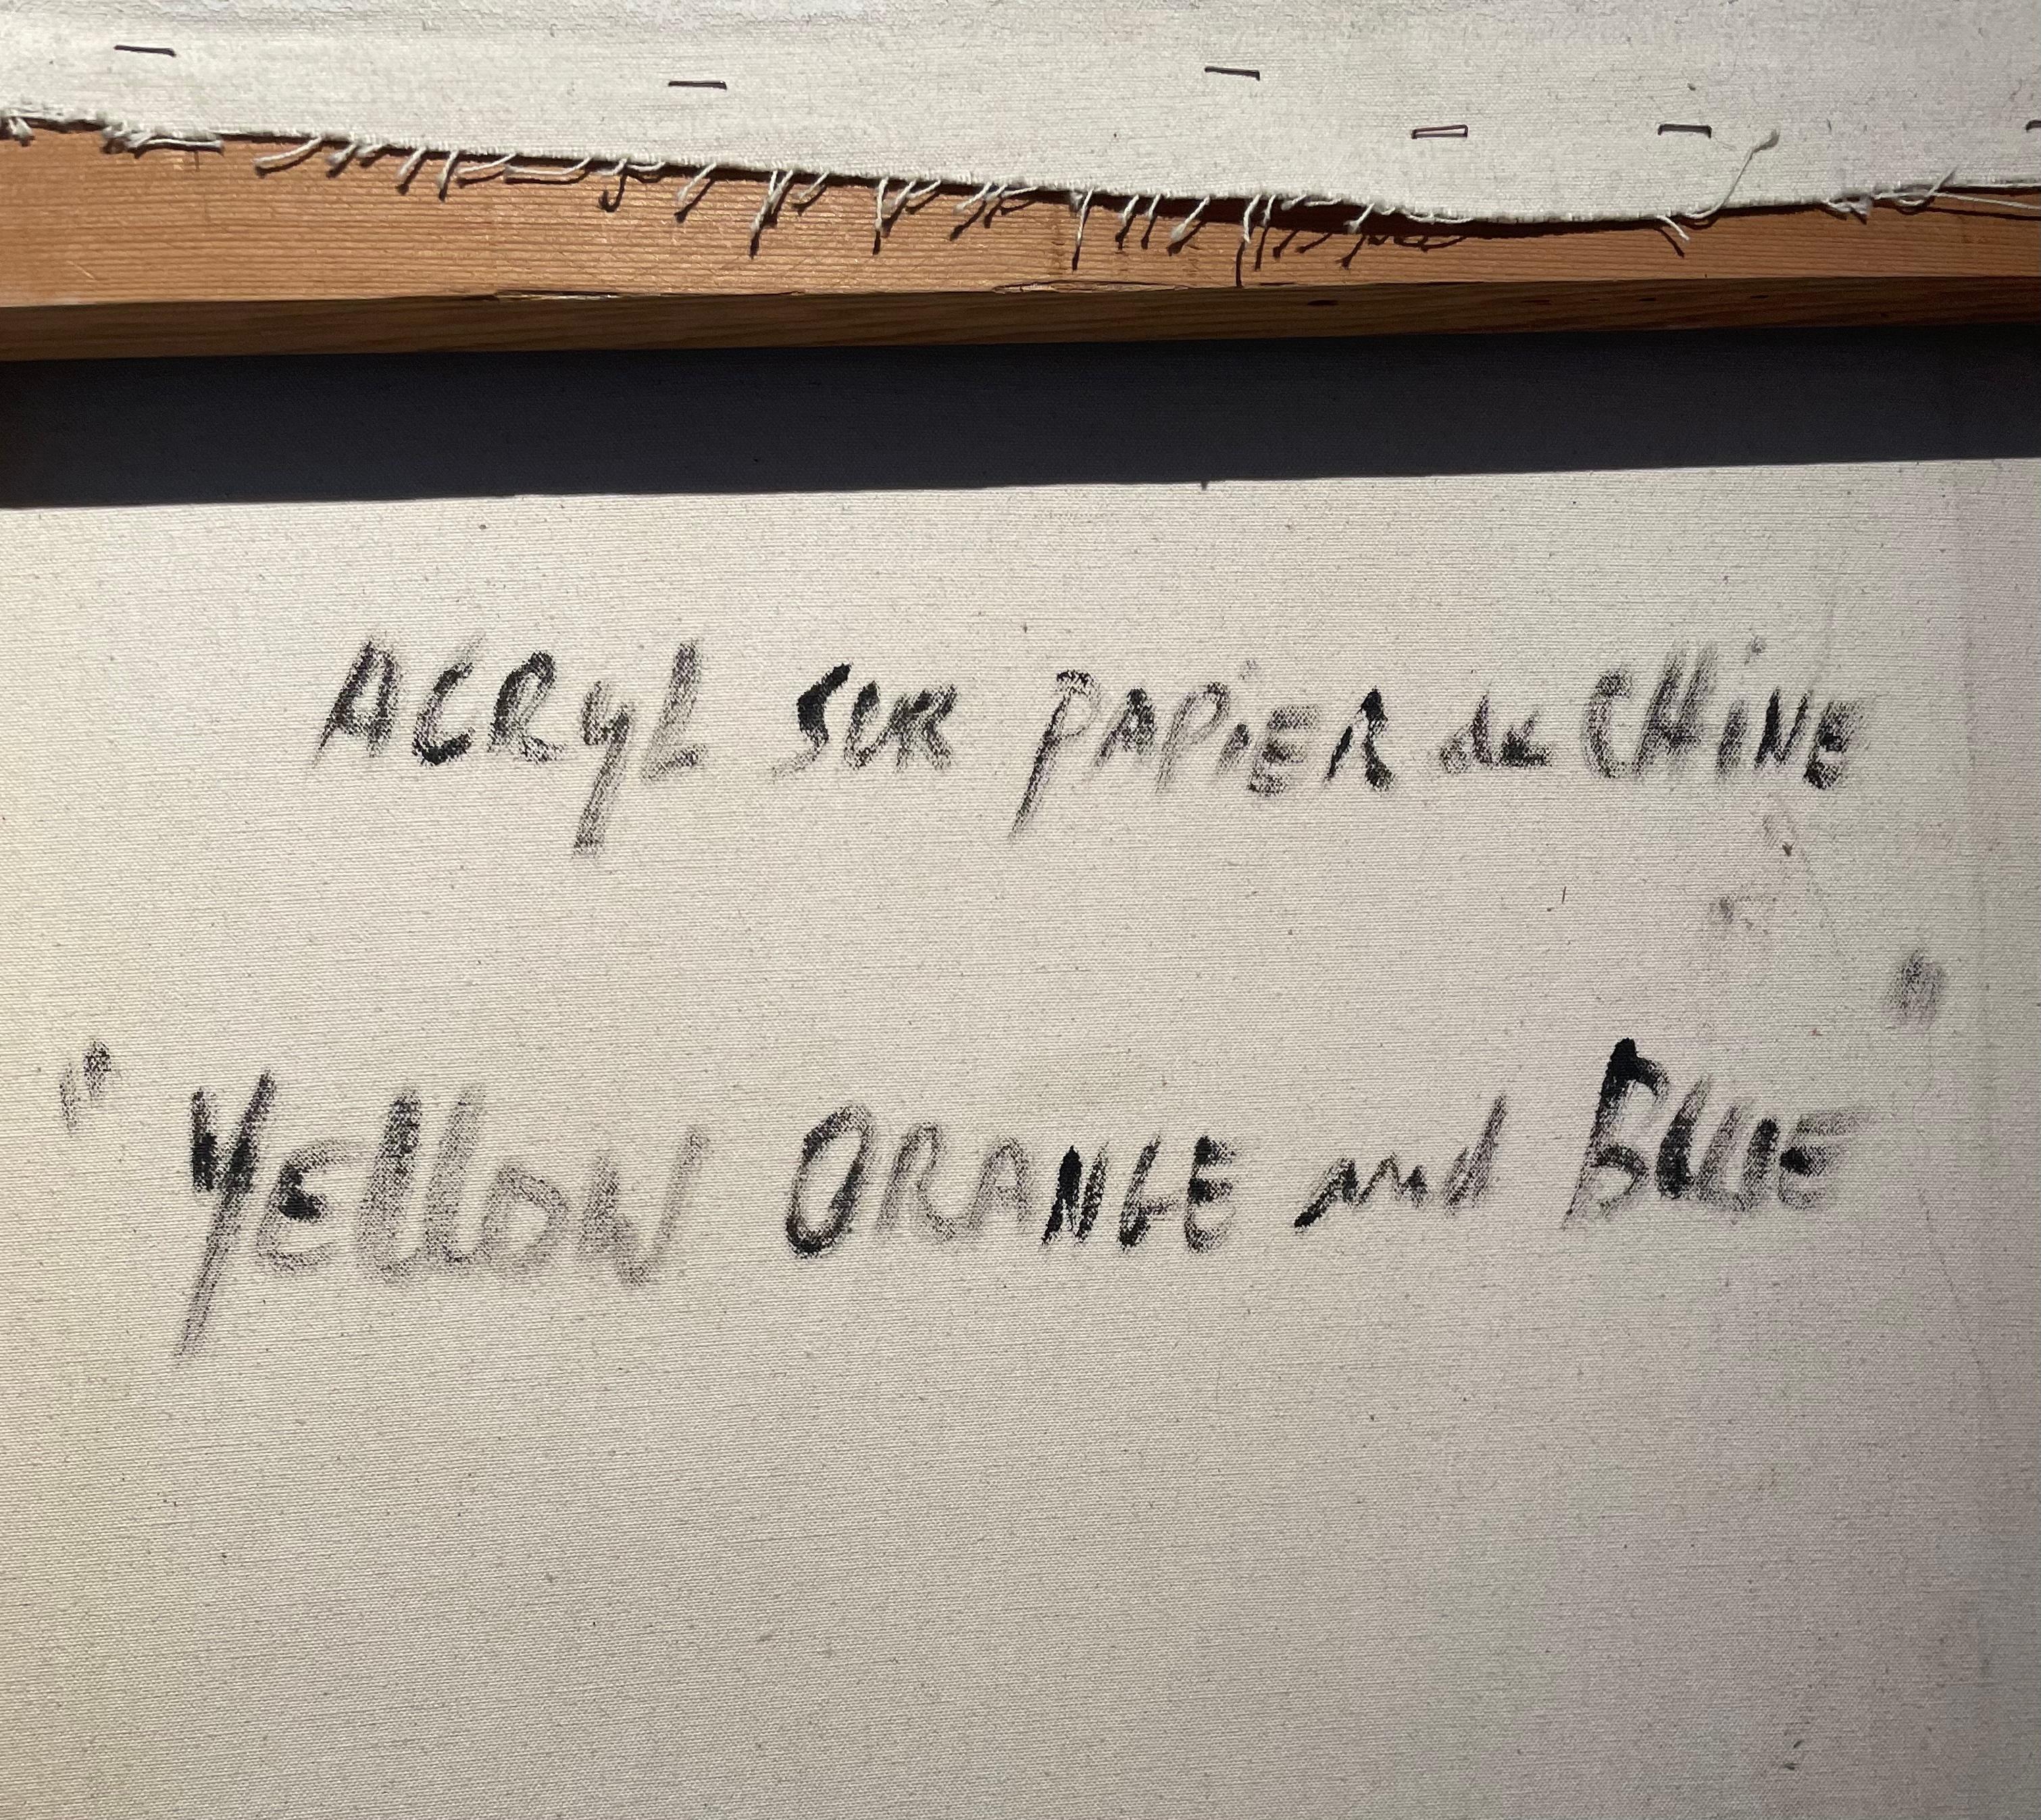 ACRyL SUR PAPiER de CHiNE
"YEllOW ORANGE and BLUE"